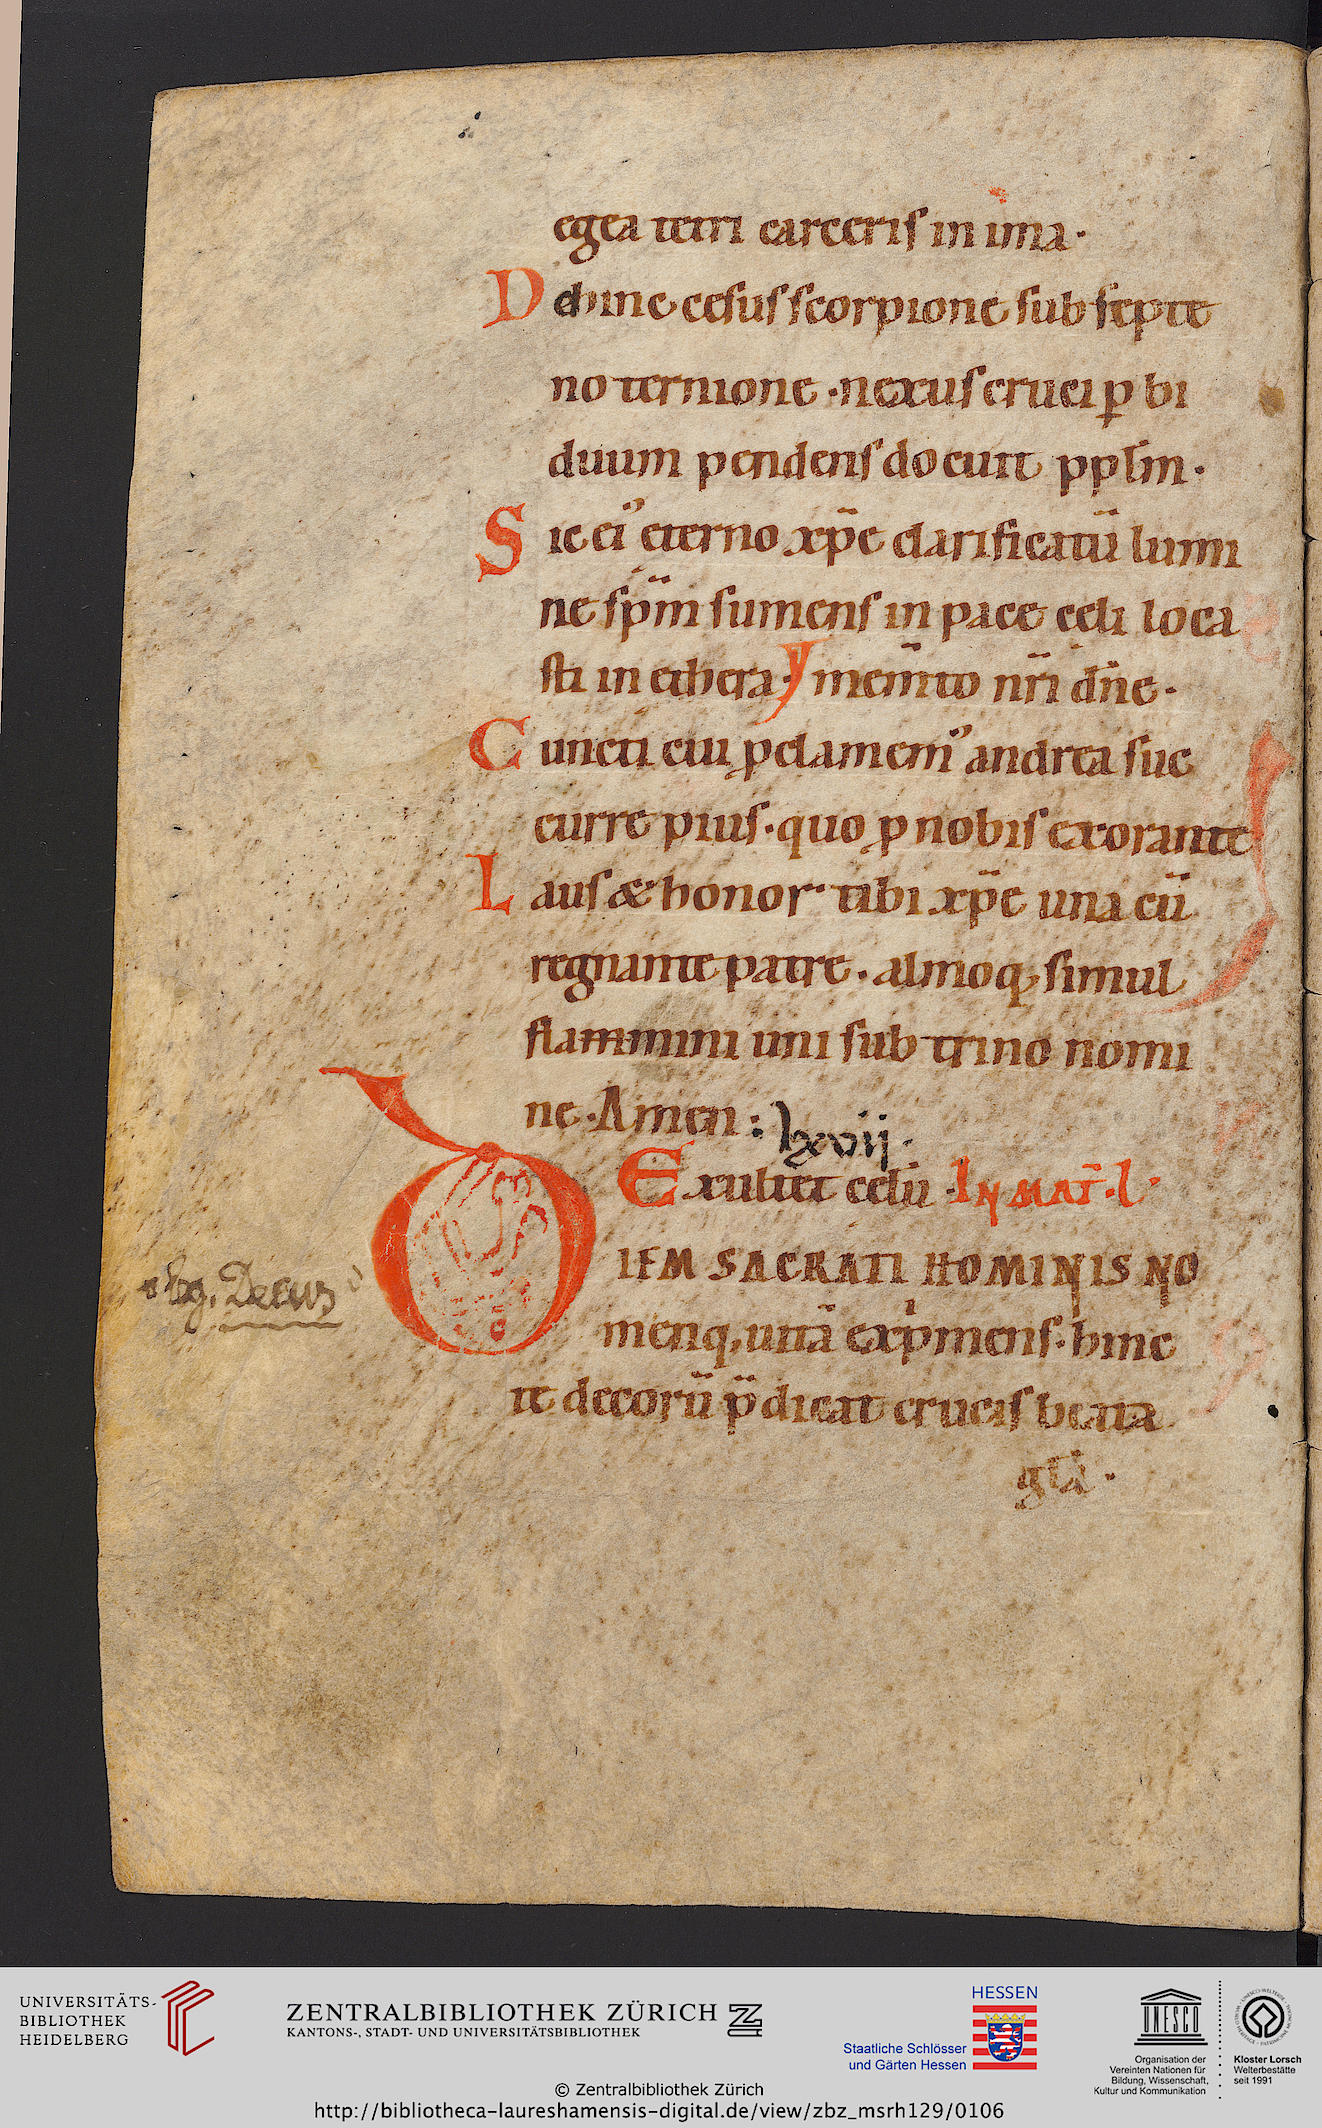 egea tetri carceris in ima·
D ehinc cesus scorpione sub septe
no ternione · nexus cruci ꝑ bi
duum pendens docuit ppl̄m·
S ic ei' eterno xp̄e clarificatū lumi
ne sp̄m sumens in pace celi loca
sti in ethera· y mem̄to nr̄i dn̄e·
C uncti cui ꝓclamem' andrea suc
curre pius· quo ꝓ nobis exorante
L aus & honor· tibi xp̄e una cū
regnante patre· almoq; simul
flammini uni sub trino nomi
ne· Amen :
lxvij·
Exultet celū · IN MAT̄· L·
D IEM SACRATI HOMINIS NO
menq; uitā exp̍mens· hinc
Eg. Decus
te decorū p̄dicat crucis beata
gl̄a·
UNIVERSITÄTS-
BIBLIOTHEK
HEIDELBERG
ZENTRALBIBLIOTHEK ZÜRICH
KANTONS-, STADT- UND UNIVERSITÄTSBIBLIOTHEK
HESSEN
Staatliche Schlösser
und Gärten Hessen
UNESCO
Organisation der
Vereinten Nationen für
Bildung, Wissenschaft,
Kultur und Kommunikation
Kloster Lorsch
Welterbestätte
seit 1991
© Zentralbibliothek Zürich
http://bibliotheca-laureshamensis-digital.de/view/zbz_msrh129/0106